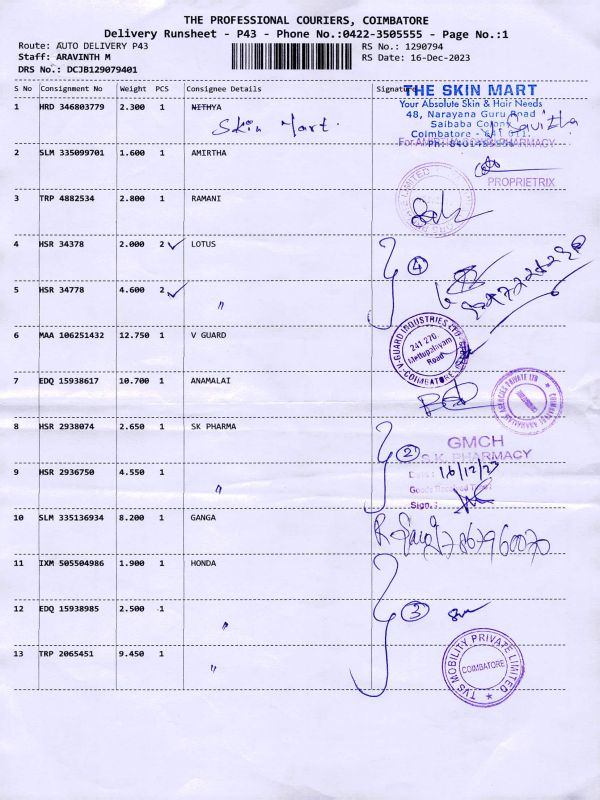 THE PROFESSIONAL COURIERS, COIMBATORE
Delivery Runsheet - P43 - Phone No.:0422-3505555 - Page No.:1
Route: AUTO DELIVERY P43 RS No.: 1290794
Staff: ARAVINTH M RS Date: 16-Dec-2023
DRS No.: DCJB129079401
S No Consignment No Weight PCS Consignee Details Signature
THE SKIN MART
Your Absolute Skin & Hair Needs
48, Narayana Guru Road
Saibaba Colony
Coimbatore - 641 011.
1 HRD 346803779 2.300 1 NITHYA
Skin Mart.
PHARMACY
2 SLM 335099701 1.600 1 AMIRTHA
PROPRIETRIX
3 TRP 4882534 2.800 1 RAMANI
4 HSR 34378 2.000 2 ✓ LOTUS
4
5 HSR 34778 4.600 2 ✓ "
6 MAA 106251432 12.750 1 V GUARD
V-GUARD INDUSTRIES LTD
241 270
Mettupalayam
Road
COIMBATORE
7 EDQ 15938617 10.700 1 ANAMALAI
8 HSR 2938074 2.650 1 SK PHARMA
2
GMCH
S.K. PHARMACY
Date: 16/12/23
9 HSR 2936750 4.550 1 "
Sign. :
10 SLM 335136934 8.200 1 GANGA
11 IXM 505504986 1.900 1 HONDA
12 EDQ 15938985 2.500 1 "
3
13 TRP 2065451 9.450 1 "
TVS MOBILITY PRIVATE LIMITED
COIMBATORE